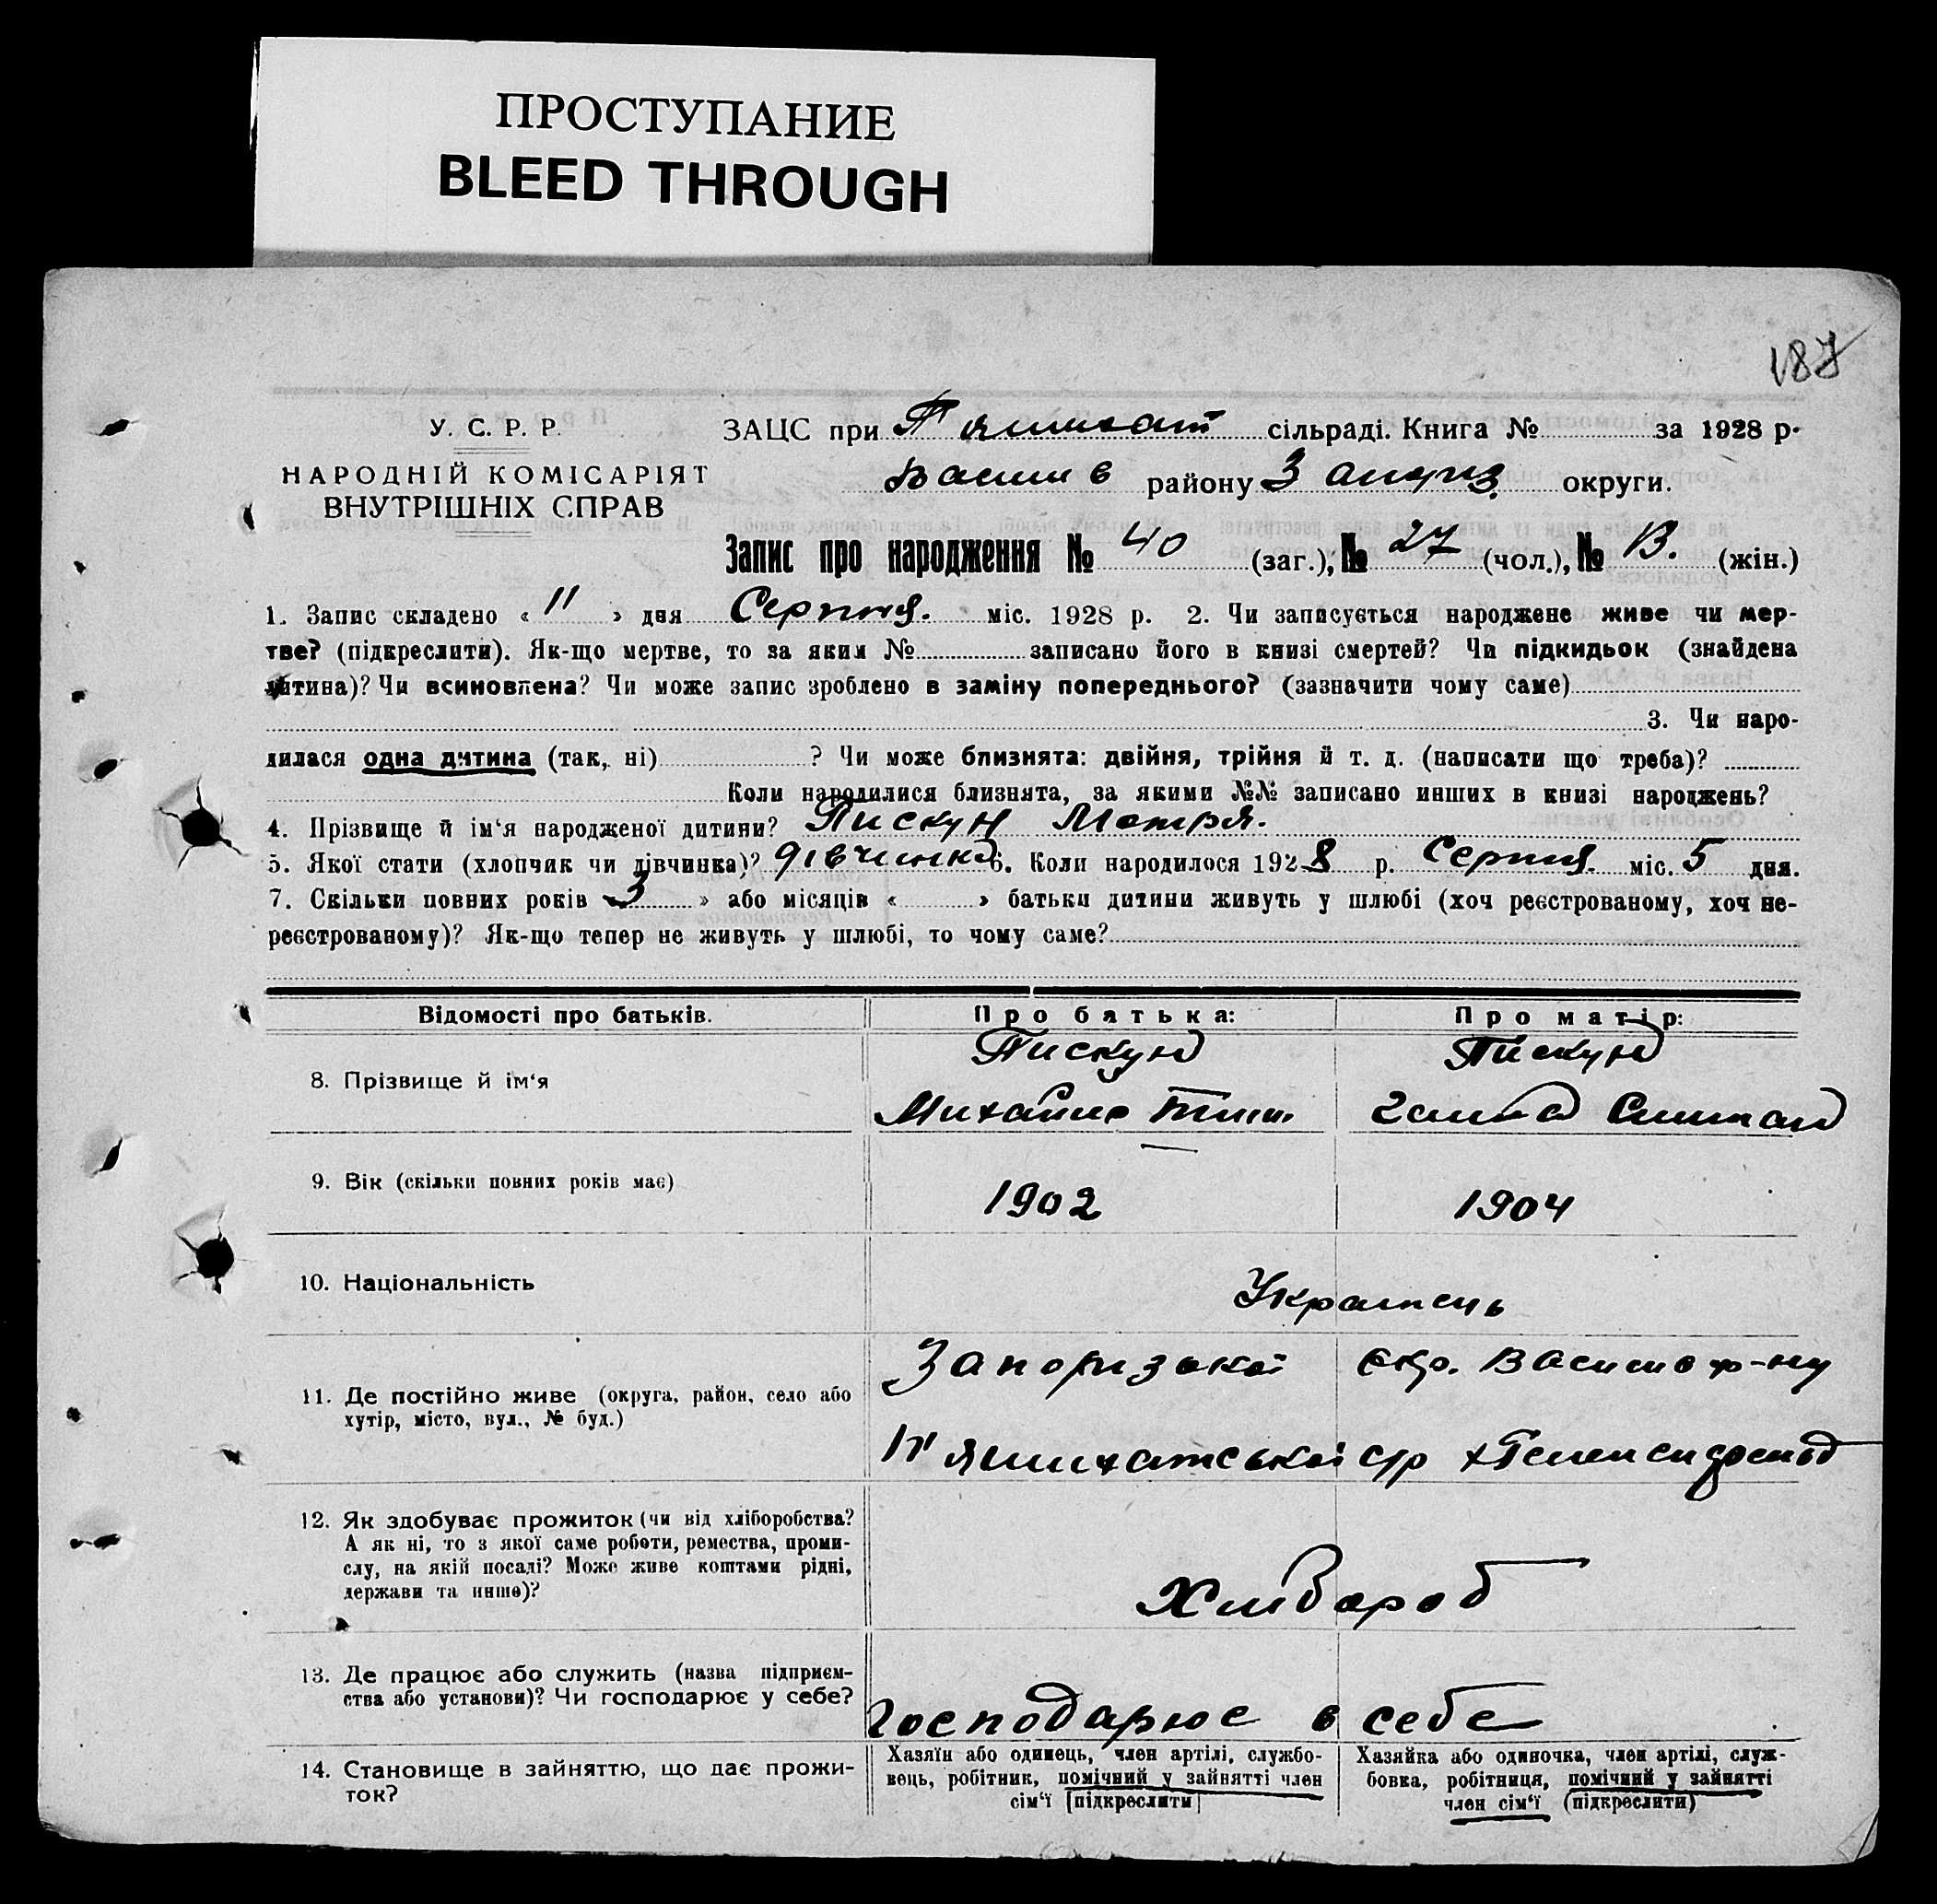 ПРОСТУПАНИЕ
BLEED THROUGH
187
У. С. Р. Р.
НАРОДНІЙ КОМІСАРІЯТ
ВНУТРІШНІХ СПРАВ
ЗАЦС при сільраді. Книга № за 1928 р.
району округи.
Запис про народження № 40 (заг.), № 27 (чол.), № (жін.)
1. Запис складено « 11 » дня Серпня. міс. 1928 р. 2. Чи записується народжене живе чи мер-
тве? (підкреслити). Як-що мертве, то за яким № записано його в книзі смертей? Чи підкидьок (знайдена
дитина)? Чи всиновлена? Чи може запис зроблено в заміну попереднього? (зазначити чому саме)
3. Чи наро-
дилася одна дитина (так, ні) ? Чи може близнята: двійня, трійня й т. д. (написати що треба)?
Коли народилися близнята, за якими №№ записано инших в книзі народжень?
4. Прізвище й ім‘я народженої дитини? Пискун Мотря.
5. Якої стати (хлопчик чи дівчинка)? дівчинка 6. Коли народилося 1928 р. Серпня. міс. 5 дня.
7. Скільки повних років « 3 » або місяців « » батьки дитини живуть у шлюбі (хоч реєстрованому, хоч не-
реєстрованому)? Як-що тепер не живуть у шлюбі, то чому саме?
Відомості про батьків. Про батька: Про матір:
8. Прізвище й ім‘я
Пискун Пискун
Михайло
9. Вік (скільки повних років має)
1902 1904
10. Національність
Українець
11. Де постійно живе (округа, район, село або
хутір, місто, вул., № буд.)
Запорізької окр. Василів р-ну
П'ятихатської с/р
12. Як здобуває прожиток (чи від хліборобства?
А як ні, то з якої саме роботи, ремества, проми-
слу, на якій посаді? Може живе коштами рідні,
держави та инше)?
Хлібороб
13. Де працює або служить (назва підприєм-
ства або установи)? Чи господарює у себе?
Господарює в себе
14. Становище в зайняттю, що дає прожи-
ток?
Хазяїн або одинець, член артілі, службо-
вець, робітник, помічний у зайнятті член
сім‘ї (підкреслити)
Хазяйка або одиночка, член артілі, служ-
бовка, робітниця, помічний у зайнятті
член сім‘ї (підкреслити)